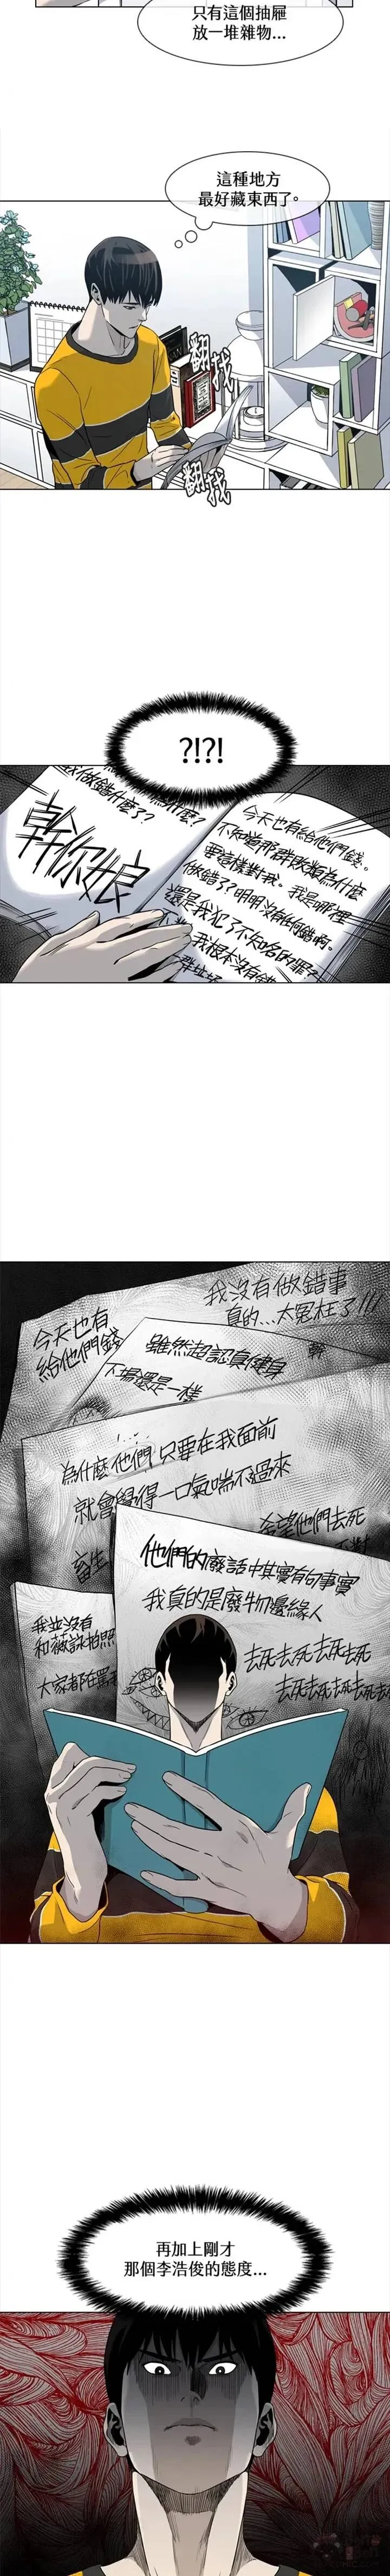 只有這個抽屜
放一堆雜物...
這種地方
最好藏東西了。
翻找
翻找
?!?!
我做錯什麼了?
為什麼?
幹你娘
今天也有給他們錢。
不知道那群敗類為什麼
要這樣對我。我是哪裡
做錯了?明明沒有任何錯啊。
還是我犯了不知名的罪?
我根本沒有錯
今天也有
給他們錢
我沒有做錯事
真的...太冤枉了!!!
幹
雖然超認真健身
下場還是一樣
為什麼他們只要在我面前
就會覺得一口氣喘不過來
希望他們去死
畜生
他們的廢話中其實有句事實
我真的是廢物邊緣人
我並沒有
和薇詠拍照
大家都在罵
去死去死去死去死
去死去死去死去死
再加上剛才
那個李浩俊的態度...